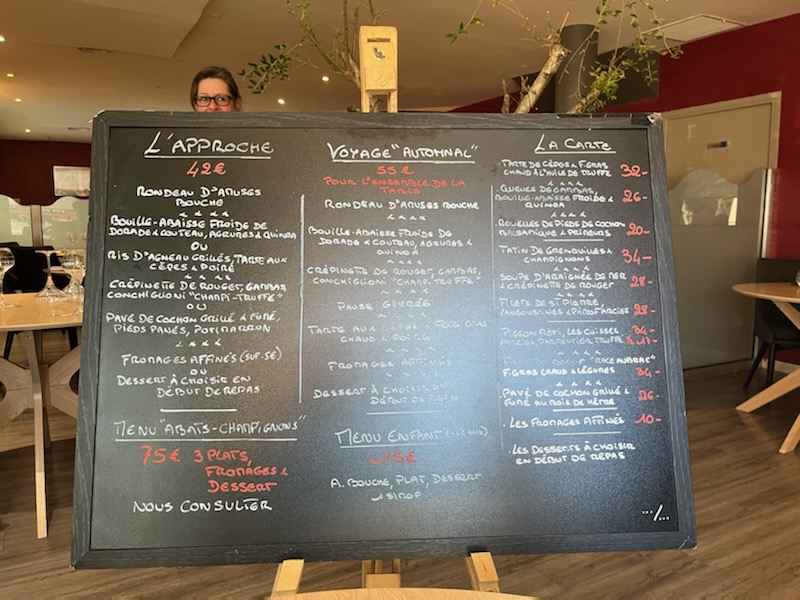 L'APPROCHE
42€
RONDEAU D'AMUSES
BOUCHE
BOUILLE-ABAISSE FROIDE DE
DORADE & COUTEAU, AGRUMES & QUINOA
OU
RIS D'AGNEAU GRILÉS, TARTE AUX
CÈPES & POIRE
CRÉPINETTE DE ROUGET, GAMBAS,
CONCHIGLIONI "CHAMP-TRUFFE"
OU
PAVÉ DE COCHON GRILLÉ & FUMÉ,
PIEDS PANÉS, POTIMARRON
FROMAGES AFFINÉS (SUP.5€)
OU
DESSERT À CHOISIR EN
DÉBUT DE REPAS
MENU "ABATS-CHAMPIGNONS"
75€ 3 PLATS,
FROMAGES &
DESSERT
NOUS CONSULTER
VOYAGE "AUTOMNAL"
55€
POUR L'ENSEMBLE DE LA
TABLE
RONDEAU D'AMUSES BOUCHE
BOUILLE-ABAISSE FROIDE DE
DORADE & COUTEAU, AGRUMES &
QUINOA
CRÉPINETTE DE ROUGET, GAMBAS,
CONCHIGLIONI "CHAMP-TRUFFE"
PAUSE GIVRÉE
TARTE AUX FOIE GRAS
CHAUD & POIRE
FROMAGES AFFINÉS
DESSERT À CHOISIR EN
DÉBUT DE REPAS
MENU ENFANT
15€
A. BOUCHE, PLAT, DESSERT
1 SIROP
LA CARTE
. TARTE DE CÈPES & F.GRAS
CHAUD À L'HUILE DE TRUFFE 32-
. QUEUES DE GAMBAS,
BOUILLE-ABAISSE FROIDE &
QUINOA 26-
. ROUELLES DE PIEDS DE COCHON
BALSAMIQUE & PRIMEURS 20-
. TATIN DE GRENOUILLES &
CHAMPIGNONS 34-
. SOUPE D'ARAIGNÉE DE MER
& CRÉPINETTE DE ROUGET 28-
. FILETS DE ST PIERRE,
LANGOUSTINES & PÂTES FARCIES 28-
. PIGEON RÔTI, LES CUISSES
FARCIES, PARMENTIER TRUFFE 34-
AUBRAC"
F.GRAS CHAUD & LÉGUMES 34-
. PAVÉ DE COCHON GRILLÉ &
FUMÉ AU BOIS DE HÊTRE 26-
. LES FROMAGES AFFINÉS 10-
. LES DESSERTS À CHOISIR
EN DÉBUT DE REPAS
.../...